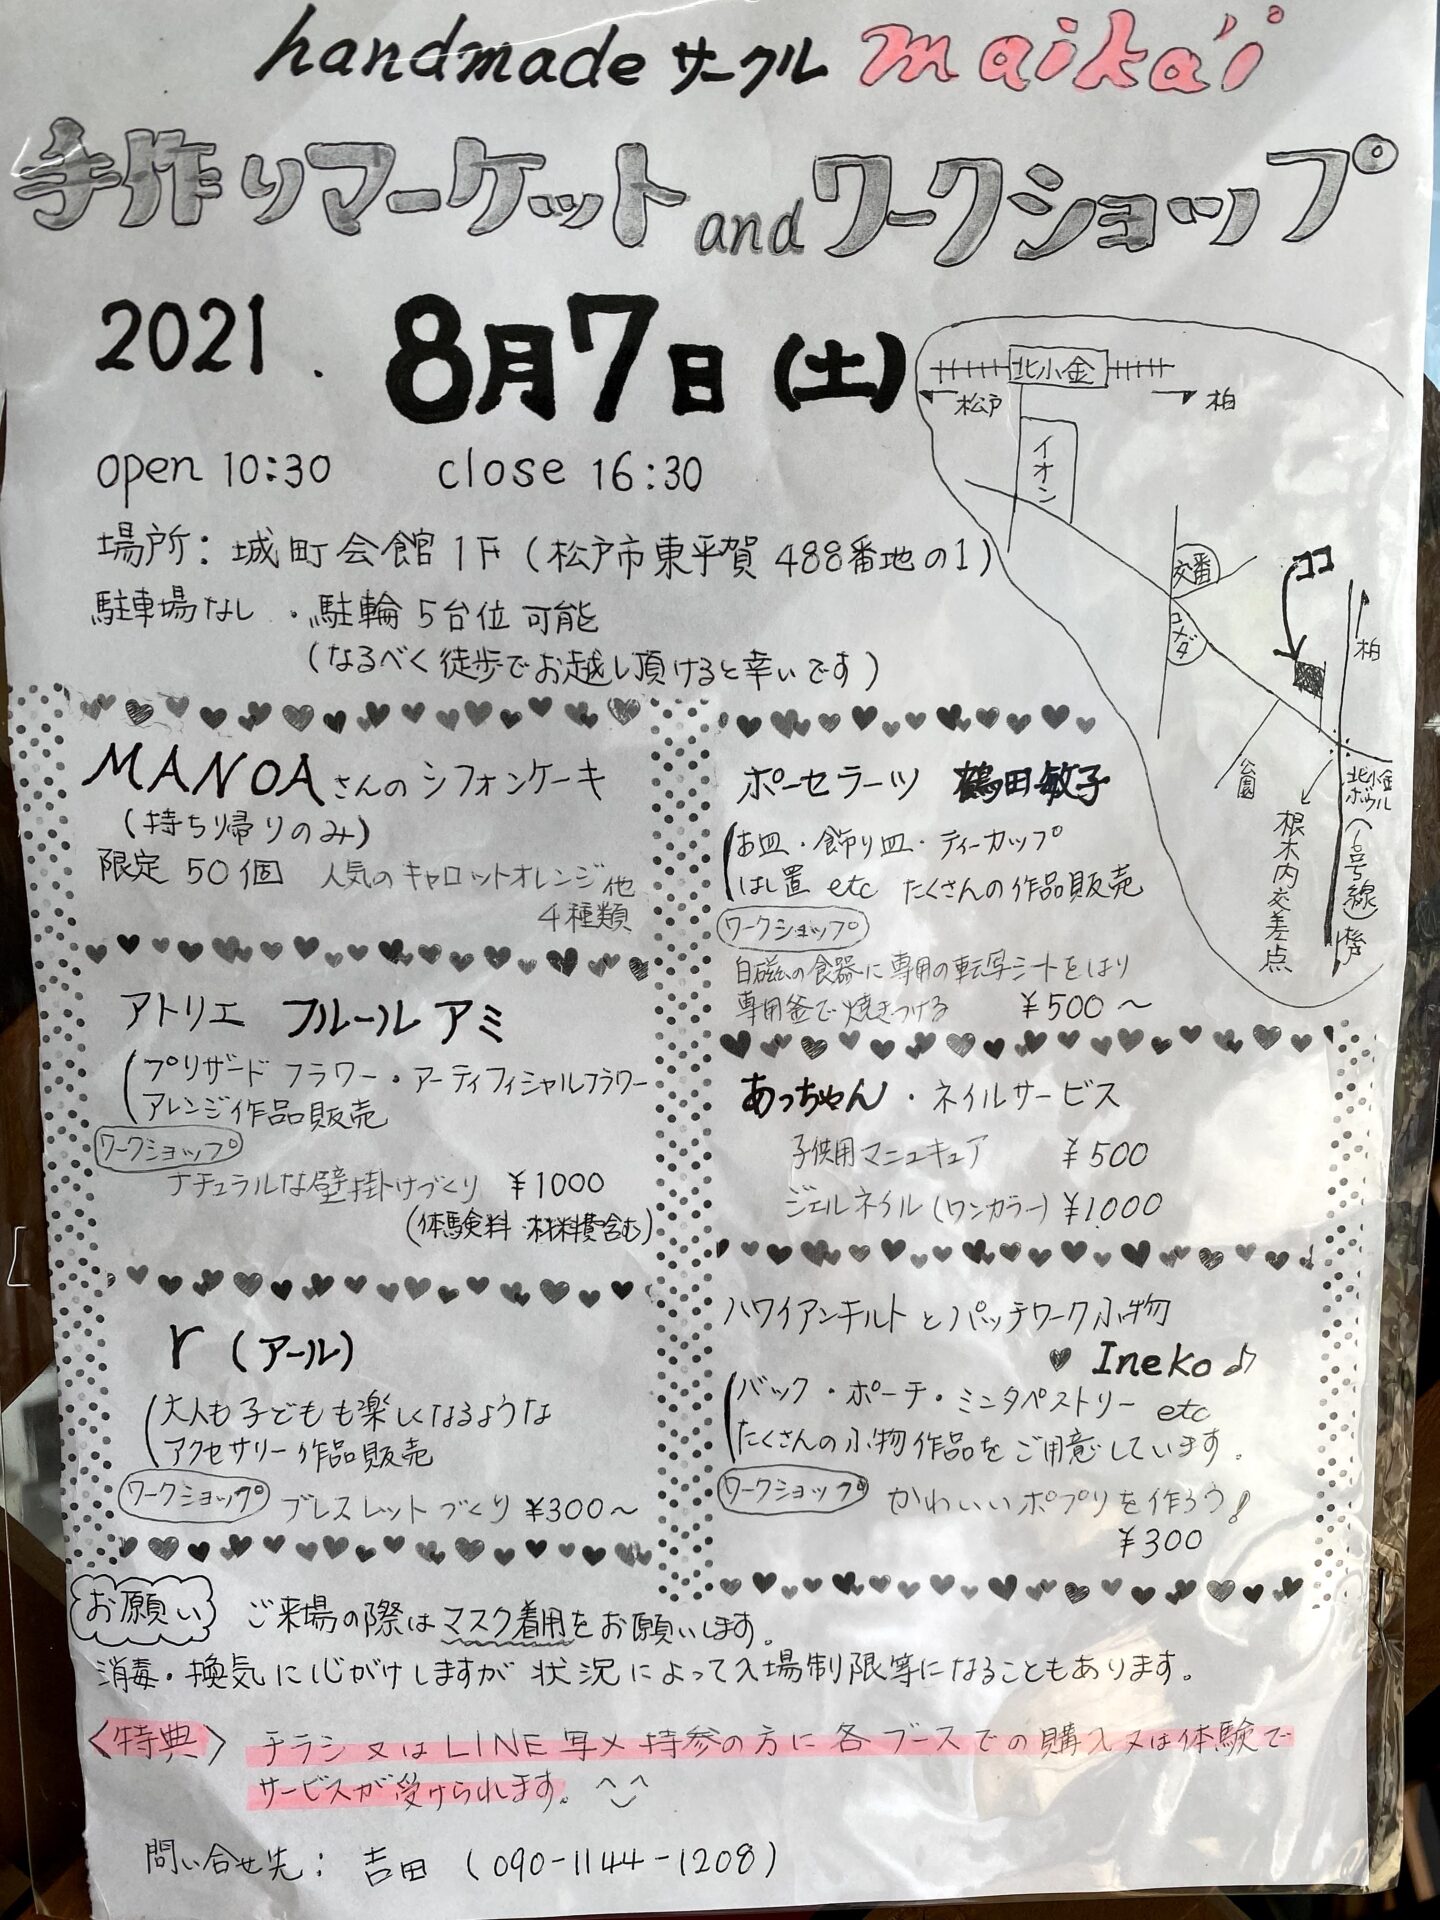 handmade サークル maika'i
手作りマーケット and ワークショップ
2021. 8月7日(土)
open 10:30 close 16:30
場所：城町会館1F(松戸市東平賀488番地の1)
駐車場なし ・駐輪5台位可能
(なるべく徒歩でお越し頂けると幸いです)
北小金
松戸
柏
イオン
交番
コメダ
ココ
柏
公園
北小金ボウル
根木内交差点
(6号線)
松戸
MANOAさんのシフォンケーキ
(持ち帰りのみ)
限定50個 人気のキャロットオレンジ他
4種類
アトリエ フルールアミ
プリザードフラワー・アーティフィシャルフラワー
アレンジ作品販売
ワークショップ
ナチュラルな壁掛けづくり ¥1000
(体験料・材料費含む)
r (アール)
大人も子どもも楽しくなるような
アクセサリー作品販売
ワークショップ ブレスレットづくり ¥300〜
ポーセラーツ 鶴田敏子
お皿・飾り皿・ティーカップ
はし置 etc たくさんの作品販売
ワークショップ
白磁の食器に専用の転写シートをはり
専用釜で焼きつける ¥500〜
あっちゃん・ネイルサービス
子供用マニュキュア ¥500
ジェルネイル(ワンカラー) ¥1,000
ハワイアンキルトとパッチワーク小物
♥ Ineko♪
バック・ポーチ・ミニタペストリー etc
たくさんの小物作品をご用意しています。
ワークショップ かわいいポプリを作ろう!
¥300
お願い ご来場の際はマスク着用をお願いします。
消毒・換気に心がけしますが状況によって入場制限等になることもあります。
〈特典〉 チラシ又はLINE写メ持参の方に各ブースでの購入又は体験で
サービスが受けられます。^‿^
問い合せ先：吉田 (090-1144-1208)